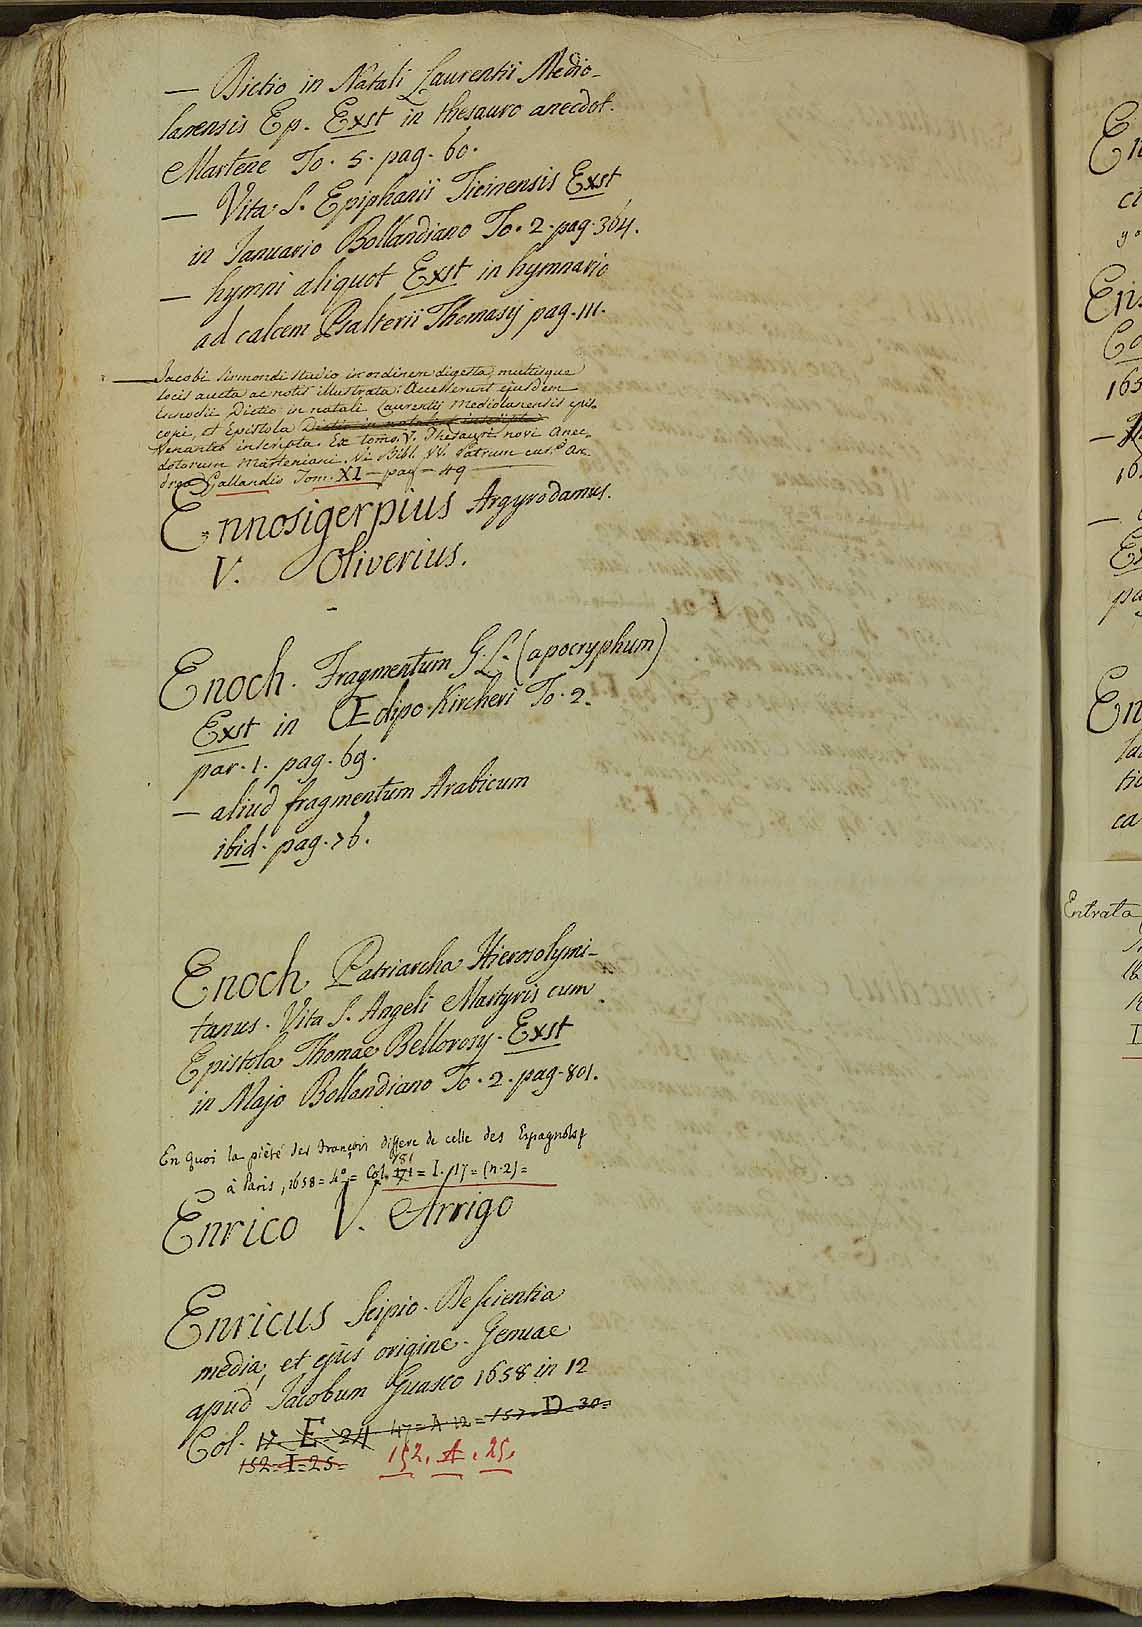 — Dictio in Natali Laurentii Medio-
lanensis Ep. Exst in thesauro anecdot.
Martene To. 5. pag. 60.
— Vita S. Epiphanii Ticinensis Exst
in Januario Bollandiano To. 2. pag. 364.
— hymni aliquot Exst in hymnario
ad calcem Psalterii Thomasij pag. 111.
— Jacobi Sirmondi studio in ordinem digesta multisque
locis aucta ac notis illustrata: Accesserunt ejusdem
Ennodii Dictio in natali Laurentij Mediolanensis epis-
copi, et Epistola Dictio in natali inscripta
Venantio inscripta. Ex tomo. V. Thesauri novi Anec-
dotorum Marteniani. In Bibl. VV. Patrum cur.e An-
drea Gallandio Tom. XI — pag — 49
Ennosigerpius Argyrodamus.
V. Oliverius.
Enoch. Fragmentum G. L. (apocryphum)
Exst in Œdipo Kircheri To. 2.
par. 1. pag. 69.
— aliud fragmentum Arabicum
ibid. pag. 76.
Enoch Patriarcha Hierosolymi-
tanus. Vita S. Angeli Martyris cum
Epistola Thomae Bellorosy. Exst
in Majo Bollandiano To. 2. pag. 801.
En quoi la piété des François differe de celle des Espagnols
181
à Paris, 1658 = 4° = Col. 171 = I. 17 = (n. 2) =
Enrico V. Arrigo
Enricus Scipio. De scientia
media, et ejus origine. Genuae
apud Jacobum Guasco 1658 in 12
Col. 17. E. 24 47 = A 12 = 157. D. 30 =
152 = I = 25 = 152. A. 25.
Entrata